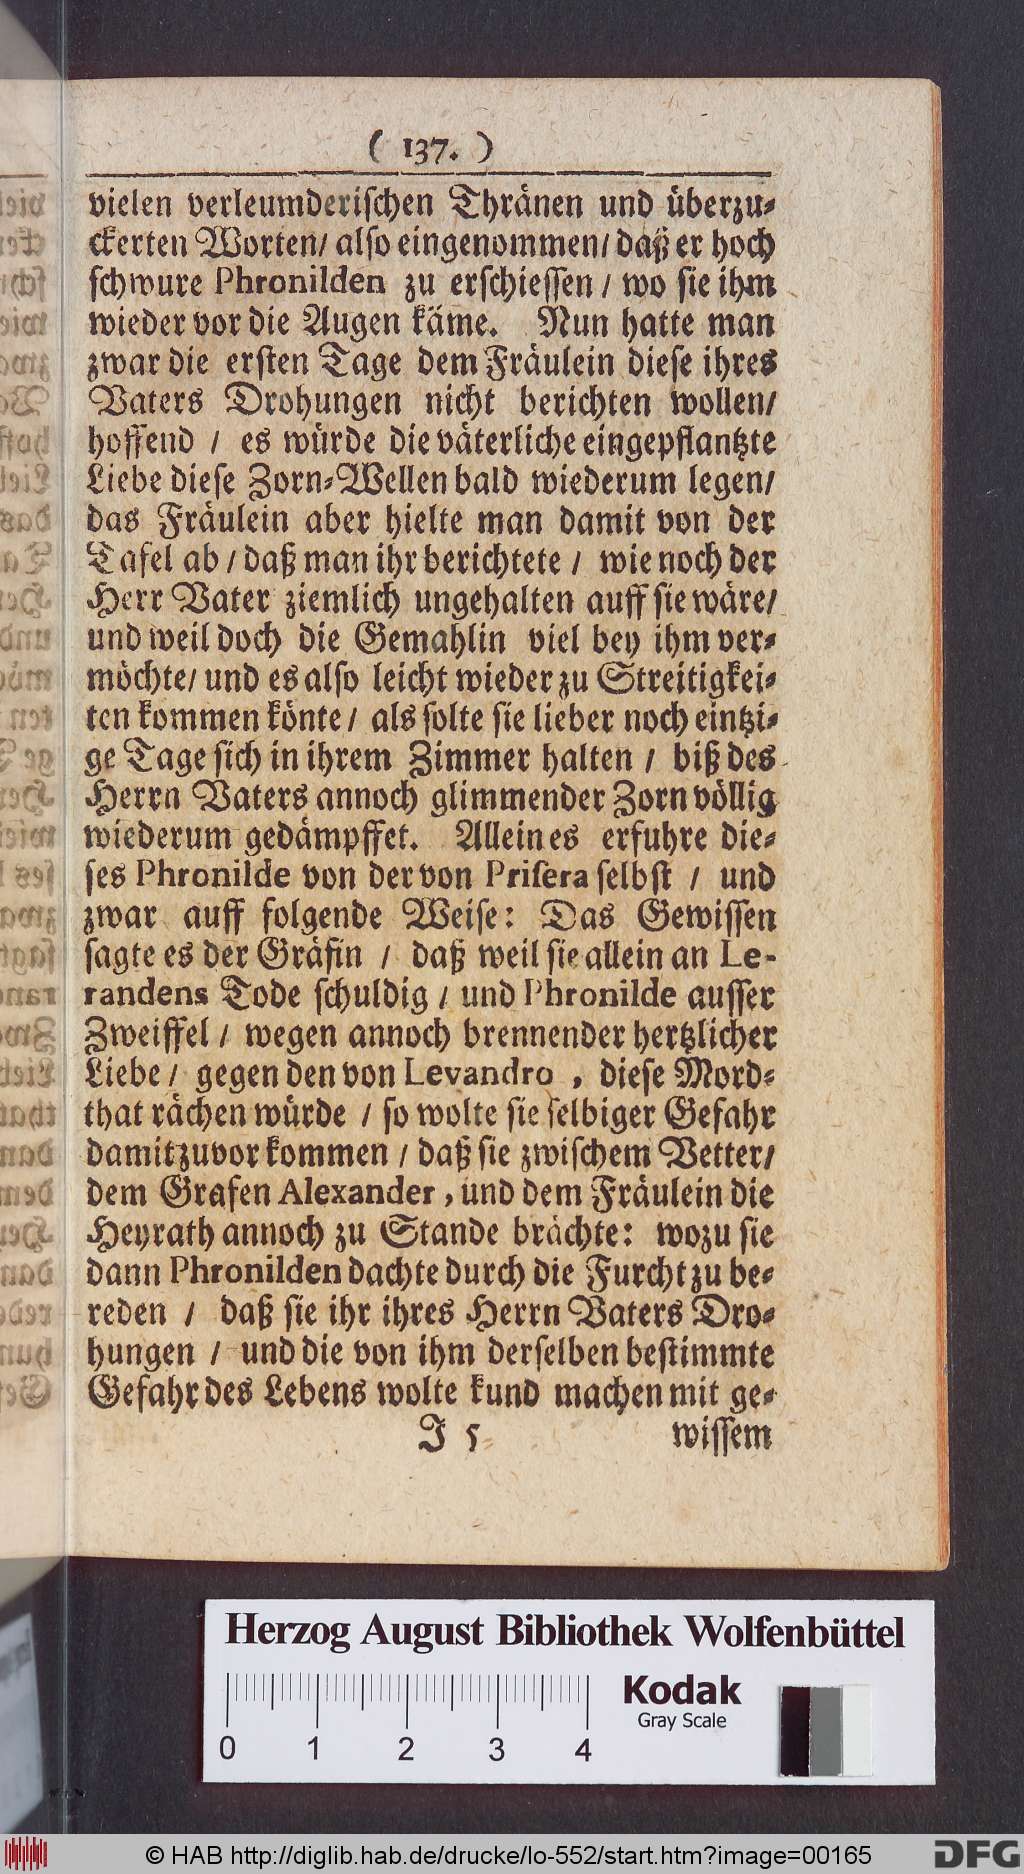 ( 137. )
vielen verleumderischen Thränen und überzu-
ckerten Worten/ also eingenommen/ daß er hoch
schwure Phronilden zu erschiessen / wo sie ihm
wieder vor die Augen käme. Nun hatte man
zwar die ersten Tage dem Fräulein diese ihres
Vaters Drohungen nicht berichten wollen/
hoffend / es würde die väterliche eingepflantzte
Liebe diese Zorn-Wellen bald wiederum legen/
das Fräulein aber hielte man damit von der
Tafel ab / daß man ihr berichtete / wie noch der
Herr Vater ziemlich ungehalten auff sie wäre/
und weil doch die Gemahlin viel bey ihm ver-
möchte/ und es also leicht wieder zu Streitigkei-
ten kommen könte/ als solte sie lieber noch eintzi-
ge Tage sich in ihrem Zimmer halten / biß des
Herrn Vaters annoch glimmender Zorn völlig
wiederum gedämpffet. Allein es erfuhre die-
ses Phronilde von der von Prisera selbst / und
zwar auff folgende Weise: Das Gewissen
sagte es der Gräfin / daß weil sie allein an Le-
randens Tode schuldig / und Phronilde ausser
Zweiffel / wegen annoch brennender hertzlicher
Liebe / gegen den von Levandro , diese Mord-
that rächen würde / so wolte sie selbiger Gefahr
damit zuvor kommen / daß sie zwischem Vetter/
dem Grafen Alexander , und dem Fräulein die
Heyrath annoch zu Stande brächte: wozu sie
dann Phronilden dachte durch die Furcht zu be-
reden / daß sie ihr ihres Herrn Vaters Dro-
hungen / und die von ihm derselben bestimmte
Gefahr des Lebens wolte kund machen mit ge-
J 5 wissem
Herzog August Bibliothek Wolfenbüttel
Kodak
Gray Scale
0 1 2 3 4
© HAB http://diglib.hab.de/drucke/lo-552/start.htm?image=00165
DFG